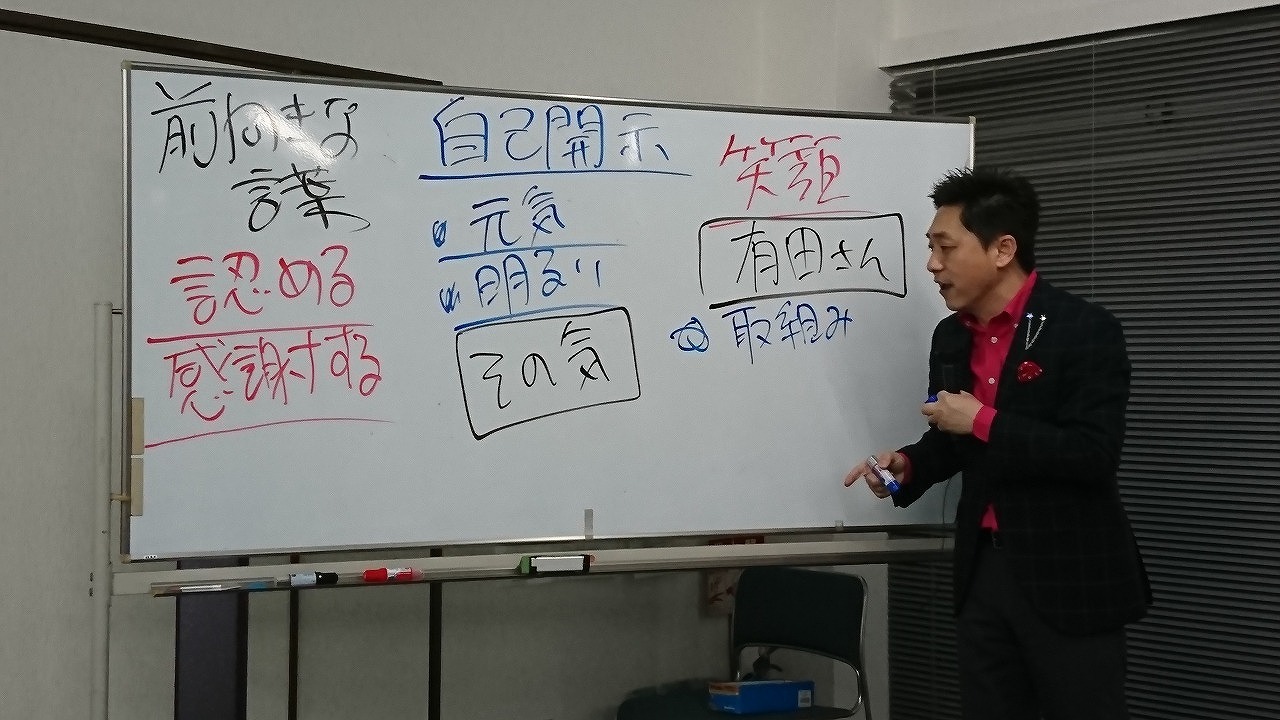 前向きな
言葉
認める
感謝する
自己開示
元気
明るい
その気
笑顔
有田さん
取組み